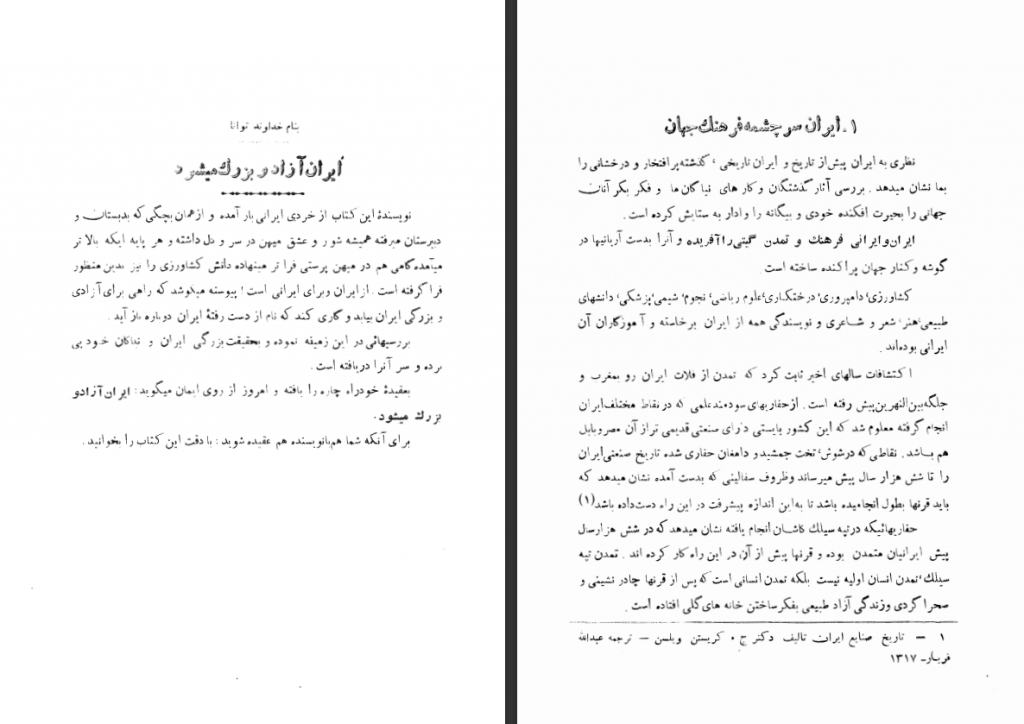 بنام خداوند توانا
ایران آزاد و بزرك میشود
نویسندهٔ این کتاب از خردی ایرانی بار آمده و از همان بچگی که بدبستان و
دبیرستان میرفته همیشه شور و عشق میهن در سر و دل داشته و هر پایه ایکه بالا تر
میآمده گامی هم در میهن پرستی فرا تر مینهاده دانش کشاورزی را نیز بدین منظور
فرا گرفته است . از ایران وبرای ایرانی است ؛ پیوسته میکوشد که راهی برای آزادی
و بزرگی ایران بیابد و کاری کند که نام از دست رفتهٔ ایران دوباره باز آید .
بررسیهائی در این زمینه نموده و بحقیقت بزرگی ایران و نیاکان خود پی
برده و سر آنرا دریافته است .
بعقیدهٔ خود راه چاره را یافته و امروز از روی ایمان میگوید : ایران آزاد و
بزرك میشود .
برای آنکه شما هم با نویسنده هم عقیده شوید : با دقت این کتاب را بخوانید .
۱ . ایران سرچشمه فرهنك جهان
نظری به ایران پیش از تاریخ و ایران تاریخی ، گذشته پر افتخار و درخشانی را
بما نشان میدهد . بررسی آثار گذشتگان و کار های نیاگان ما و فکر بکر آنان
جهانی را بحیرت افکنده خودی و بیگانه را وادار به ستایش کرده است .
ایران و ایرانی فرهنك و تمدن گیتی را آفریده و آنرا بدست آریانیها در
گوشه و کنار جهان پراکنده ساخته است
کشاورزی، دامپروری، درختکاری، علوم ریاضی، نجوم، شیمی، پزشکی، دانشهای
طبیعی، هنر، شعر و شاعری و نویسندگی همه از ایران برخاسته و آموزگاران آن
ایرانی بوده‌اند .
اکتشافات سالهای اخیر ثابت کرد که تمدن از فلات ایران رو بمغرب و
جلگه بین‌النهرین پیش رفته است . از حفاریهای سودمند علمی که در نقاط مختلف ایران
انجام گرفته معلوم شد که این کشور بایستی دارای صنعتی قدیمی تر از آن مصر و بابل
هم باشد . نقاطی که در شوش، تخت جمشید و دامغان حفاری شده تاریخ صنعتی ایران
را تا شش هزار سال پیش میرساند وظروف سفالینی که بدست آمده نشان میدهد که
باید قرنها بطول انجامیده باشد تا به این اندازه پیشرفت در این راه دست داده باشد (۱)
حفاریهائیکه در تپه سیلك کاشان انجام یافته نشان میدهد که در شش هزار سال
پیش ایرانیان متمدن بوده و قرنها پیش از آن در این راه کار کرده اند . تمدن تپه
سیلك، تمدن انسان اولیه نیست بلکه تمدن انسانی است که پس از قرنها چادر نشینی و
صحرا گردی و زندگی آزاد طبیعی بفکر ساختن خانه های گلی افتاده است .
۱ – تاریخ صنایع ایران تالیف دکتر ج . کریستن ویلسن – ترجمه عبدالله
فریار- ۱۳۱۷